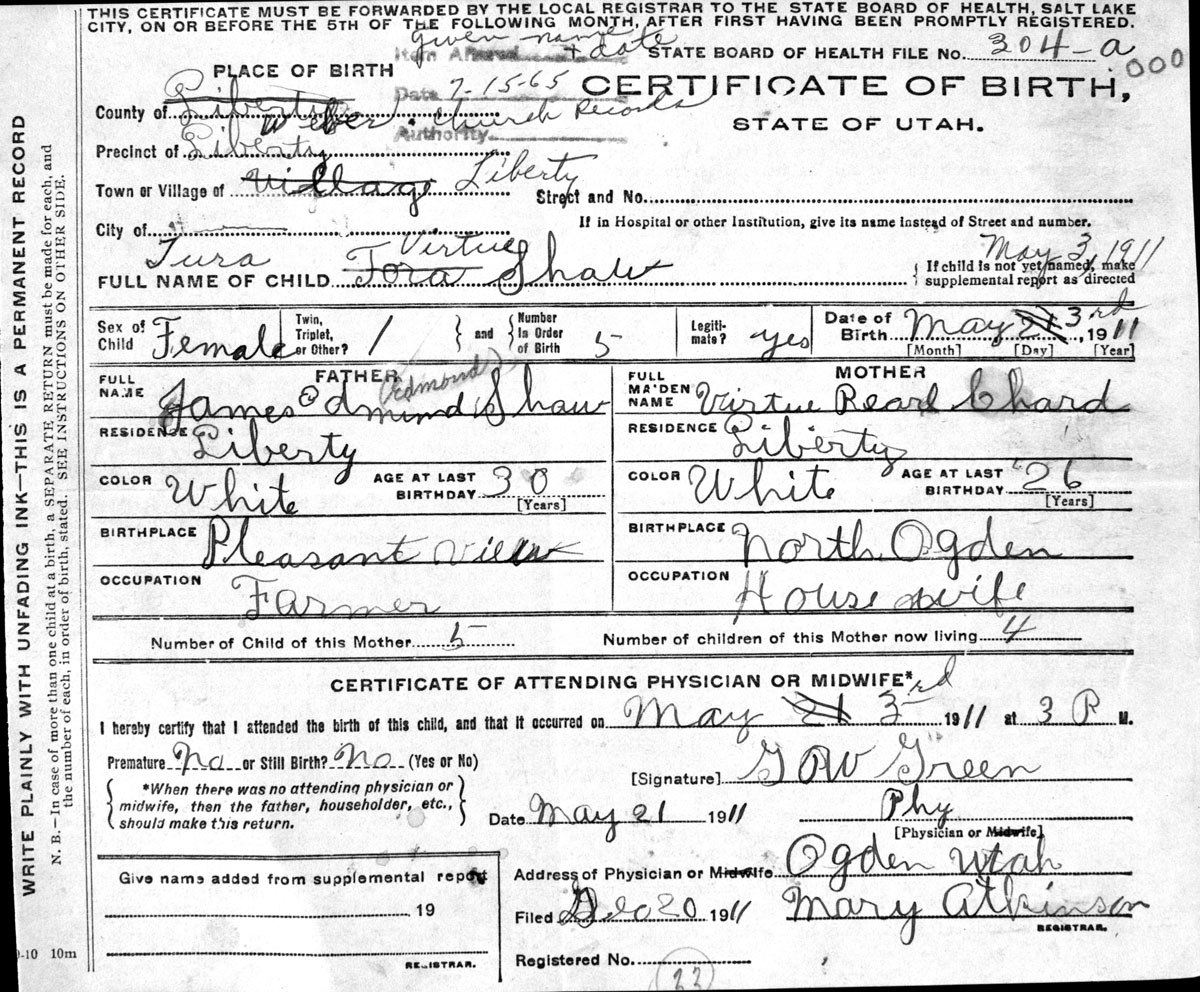 THIS CERTIFICATE MUST BE FORWARDED BY THE LOCAL REGISTRAR TO THE STATE BOARD OF HEALTH, SALT LAKE
CITY, ON OR BEFORE THE 5TH OF THE FOLLOWING MONTH, AFTER FIRST HAVING BEEN PROMPTLY REGISTERED.
given name
Item Altered + date
STATE BOARD OF HEALTH FILE No. 304-a
000
PLACE OF BIRTH
Date 7-15-65
CERTIFICATE OF BIRTH,
County of Liberty Weber
Church Records
Authority
STATE OF UTAH.
Precinct of Liberty
Town or Village of Village Liberty
Street and No.
City of
If in Hospital or other Institution, give its name instead of Street and number.
Tura Virtue
May 3, 1911
FULL NAME OF CHILD Tora Shaw
If child is not yet named, make
supplemental report as directed
Sex of Child Female
Twin, Triplet, or Other? 1
and
Number In Order of Birth 5
Legitimate? yes
Date of Birth May 21 3rd, 1911
[Month] [Day] [Year]
FATHER
FULL NAME James Edmund Shaw
(Edmond)
MOTHER
FULL MAIDEN NAME Virtue Pearl Chard
RESIDENCE Liberty
RESIDENCE Liberty
COLOR White
AGE AT LAST BIRTHDAY 30
[Years]
COLOR White
AGE AT LAST BIRTHDAY 26
[Years]
BIRTHPLACE Pleasant View
BIRTHPLACE North Ogden
OCCUPATION Farmer
OCCUPATION House wife
Number of Child of this Mother 5
Number of children of this Mother now living 4
CERTIFICATE OF ATTENDING PHYSICIAN OR MIDWIFE*
I hereby certify that I attended the birth of this child, and that it occurred on May 21 3rd 1911 at 3 P M.
Premature No or Still Birth? No (Yes or No)
[Signature] G W Green
*When there was no attending physician or
midwife, then the father, householder, etc.,
should make this return.
Date May 21 1911
Phy
[Physician or Midwife]
Address of Physician or Midwife Ogden Utah
Give name added from supplemental report
19
REGISTRAR.
Filed Dec 20 1911
Mary Atkinson
REGISTRAR.
Registered No.
22
-10 10m
WRITE PLAINLY WITH UNFADING INK—THIS IS A PERMANENT RECORD
N. B.—In case of more than one child at a birth, a SEPARATE RETURN must be made for each, and
the number of each, in order of birth, stated. SEE INSTRUCTIONS ON OTHER SIDE.